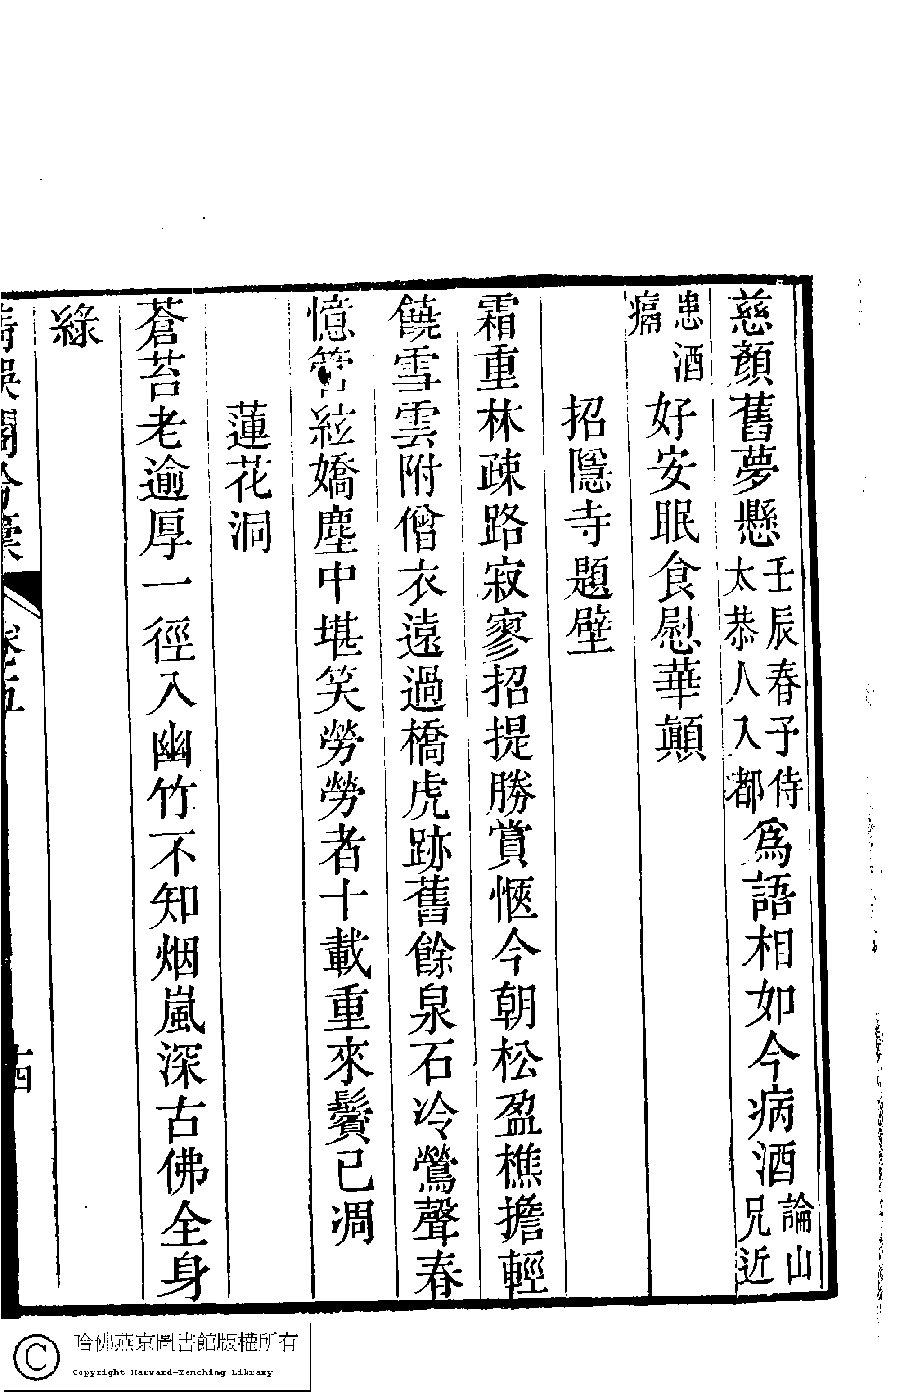 慈顏舊夢懸壬辰春予侍太恭人入都為語相如今病酒論山兄近
患酒痟好安眠食慰華顛
招隱寺題壁
霜重林疎路寂寥招提勝賞愜今朝松盈樵擔輕
饒雪雲附僧衣遠過橋虎跡舊餘泉石冷鶯聲春
憶管絃嬌塵中堪笑勞勞者十載重來鬢已凋
蓮花洞
蒼苔老逾厚一徑入幽竹不知烟嵐深古佛全身
綠
卷五
十四
哈佛燕京圖書館版權所有
Copyright Harvard-Yenching Library